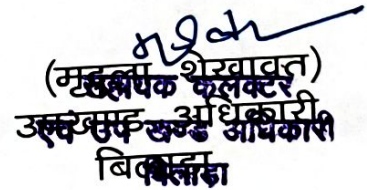 (मृदुला शेखावत)
सहायक कलक्टर
उपखण्ड अधिकारी
एवं उप खण्ड अधिकारी
बिलाड़ा
बिलाड़ा